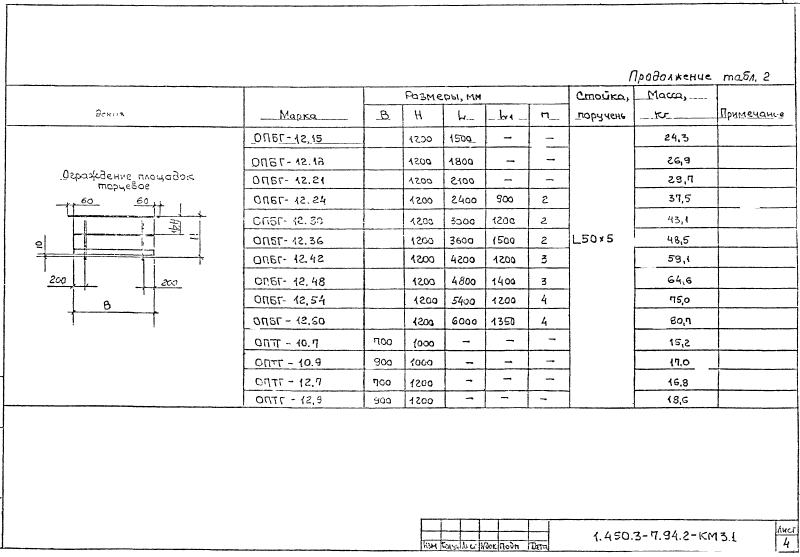 Продолжение табл. 2
Эскиз Марка Размеры, мм Стойка, поручень Масса, кг Примечание
B H L L1 n
ОПБГ-12.15 1200 1500 — — 24,3
ОПБГ-12.18 1200 1800 — — 26,9
ОПБГ-12.21 1200 2100 — — 29,7
ОПБГ-12.24 1200 2400 900 2 37,5
ОПБГ-12.30 1200 3000 1200 2 43,1
ОПБГ-12.36 1200 3600 1500 2 L50×5 48,5
ОПБГ-12.42 1200 4200 1200 3 59,1
ОПБГ-12.48 1200 4800 1400 3 64,6
ОПБГ-12.54 1200 5400 1200 4 75,0
ОПБГ-12.60 1200 6000 1350 4 80,7
ОПТГ-10.7 700 1000 — — — 15,2
ОПТГ-10.9 900 1000 — — — 17,0
ОПТГ-12.7 700 1200 — — — 16,8
ОПТГ-12.9 900 1200 — — — 18,6
Ограждение площадок
торцевое
60 60
H
10
200 200
B
Изм Кол.уч Лист №док Подп Дата
1.450.3-7.94.2-КМ3.1
Лист
4